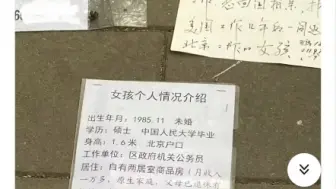 美国工作
北京工作的女孩
女孩个人情况介绍
出生年月：1985.11 未婚
学历：硕士 中国人民大学毕业
身高：1.6米 北京户口
工作单位：区政府机关公务员
居住：自有两居室商品房（月收入
一万多，原生家庭，父母已退休有